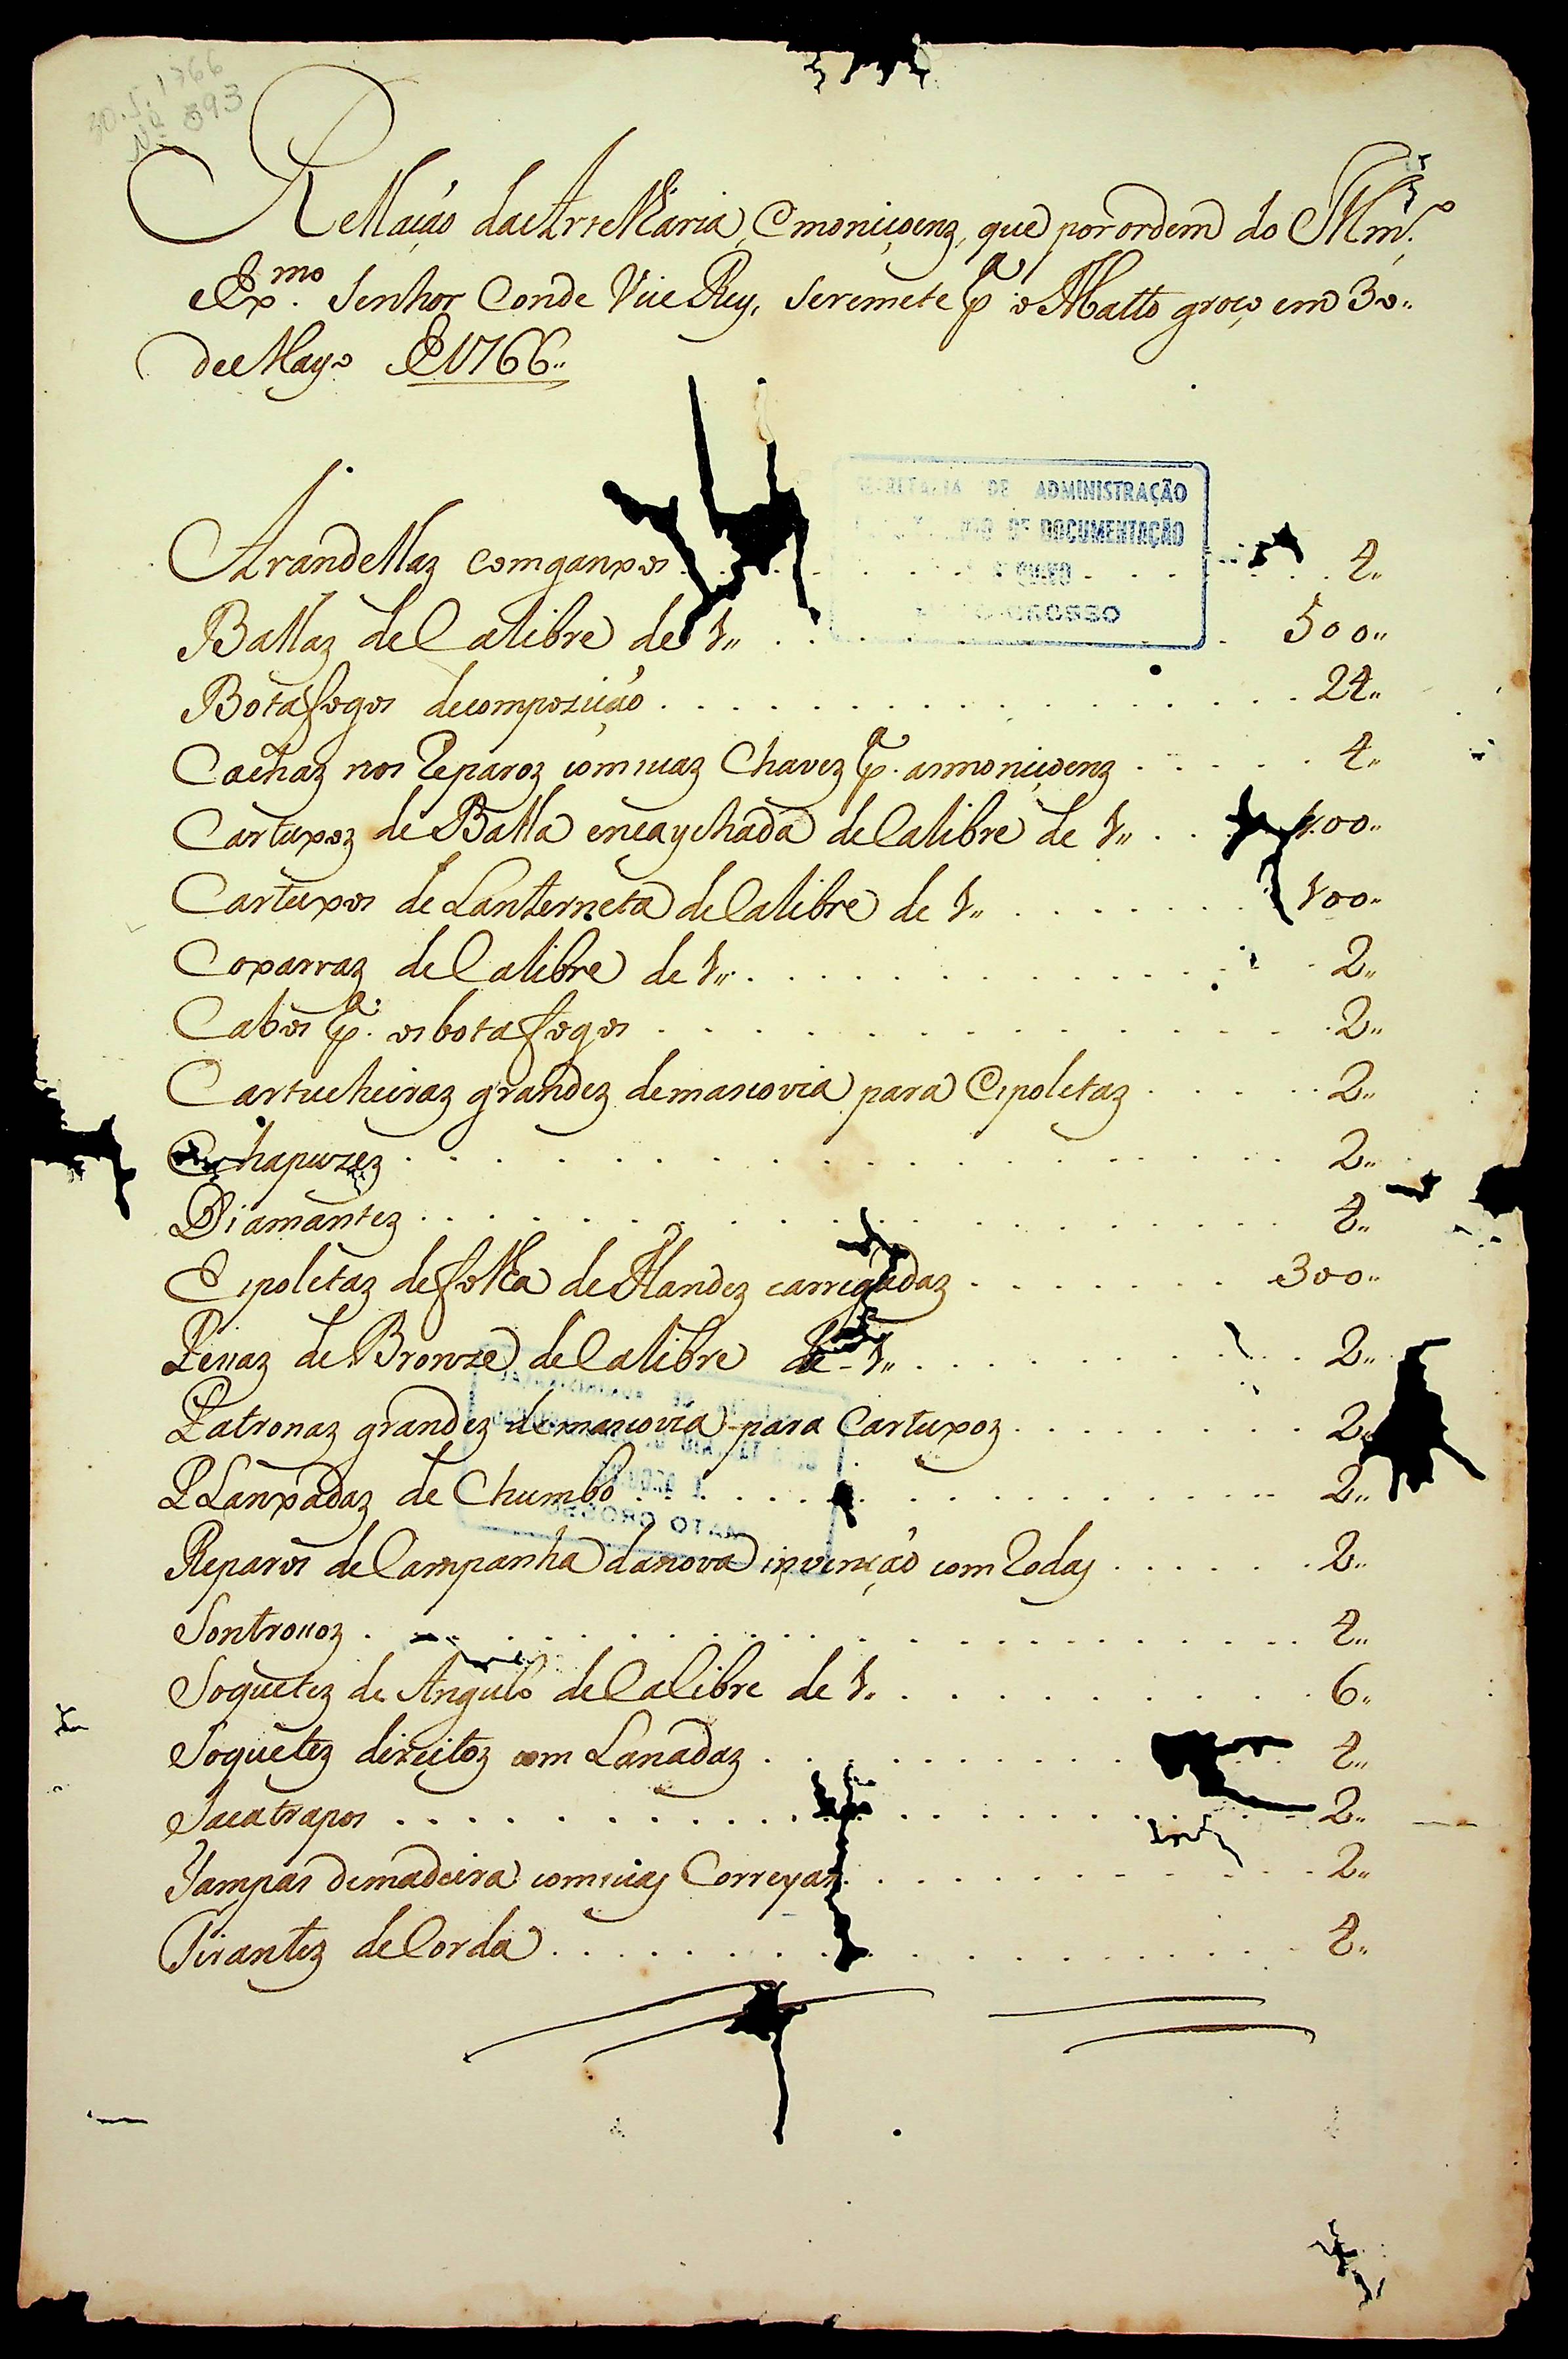 30.5.1766
Nº 393
Rellação da Artelharia, e moniçoenz, que por ordem do Illmº.
Exmo. Senhor Conde Vice Rey, se remete pª o Matto groço em 30..
de Mayo de 1766..
SECRETARIA DE ADMINISTRAÇÃO
DE DOCUMENTAÇÃO
E ARQUIVO
MATO GROSSO
Arandellaz com ganxos . . . . 4..
Ballaz de Calibre de 1.. . . . . 500..
Botafogos de compozição . . . . 24..
Caixaz nos Reparoz com suaz Chavez pª. as moniçoenz . . . . 4..
Cartuxoz de Balla encayxhada de Calibre de 1.. . . . . 100..
Cartuxos de Lanterneta de Calibre de 1.. . . . . 100..
Coxarraz de Calibre de 1.. . . . . 2..
Cabos pª. os botafogos . . . . 2..
Cartucheiraz grandez de moscovia para Espoletaz . . . . 2..
Chapuzez . . . . 2..
Diamantez . . . . 4..
Espoletaz de folha de Flandez carregadaz . . . . 300..
Pessaz de Bronze de Calibre de 1.. . . . . 2..
Patronaz grandez de moscovia para Cartuxoz . . . . 2..
PLanxadaz de Chumbo . . . . 2..
MATO GROSSO
Reparos de Campanha da nova invenção com Rodas . . . . 2..
Sontrossoz . . . . 4..
Soquetez de Angulo de Calibre de 1.. . . . . 6..
Soquetez direitoz com Lanadaz . . . . 4..
Sacatrapos . . . . 2..
Tampas de madeira com suas Correyas . . . . 2..
Tirantez de Corda . . . . 4..